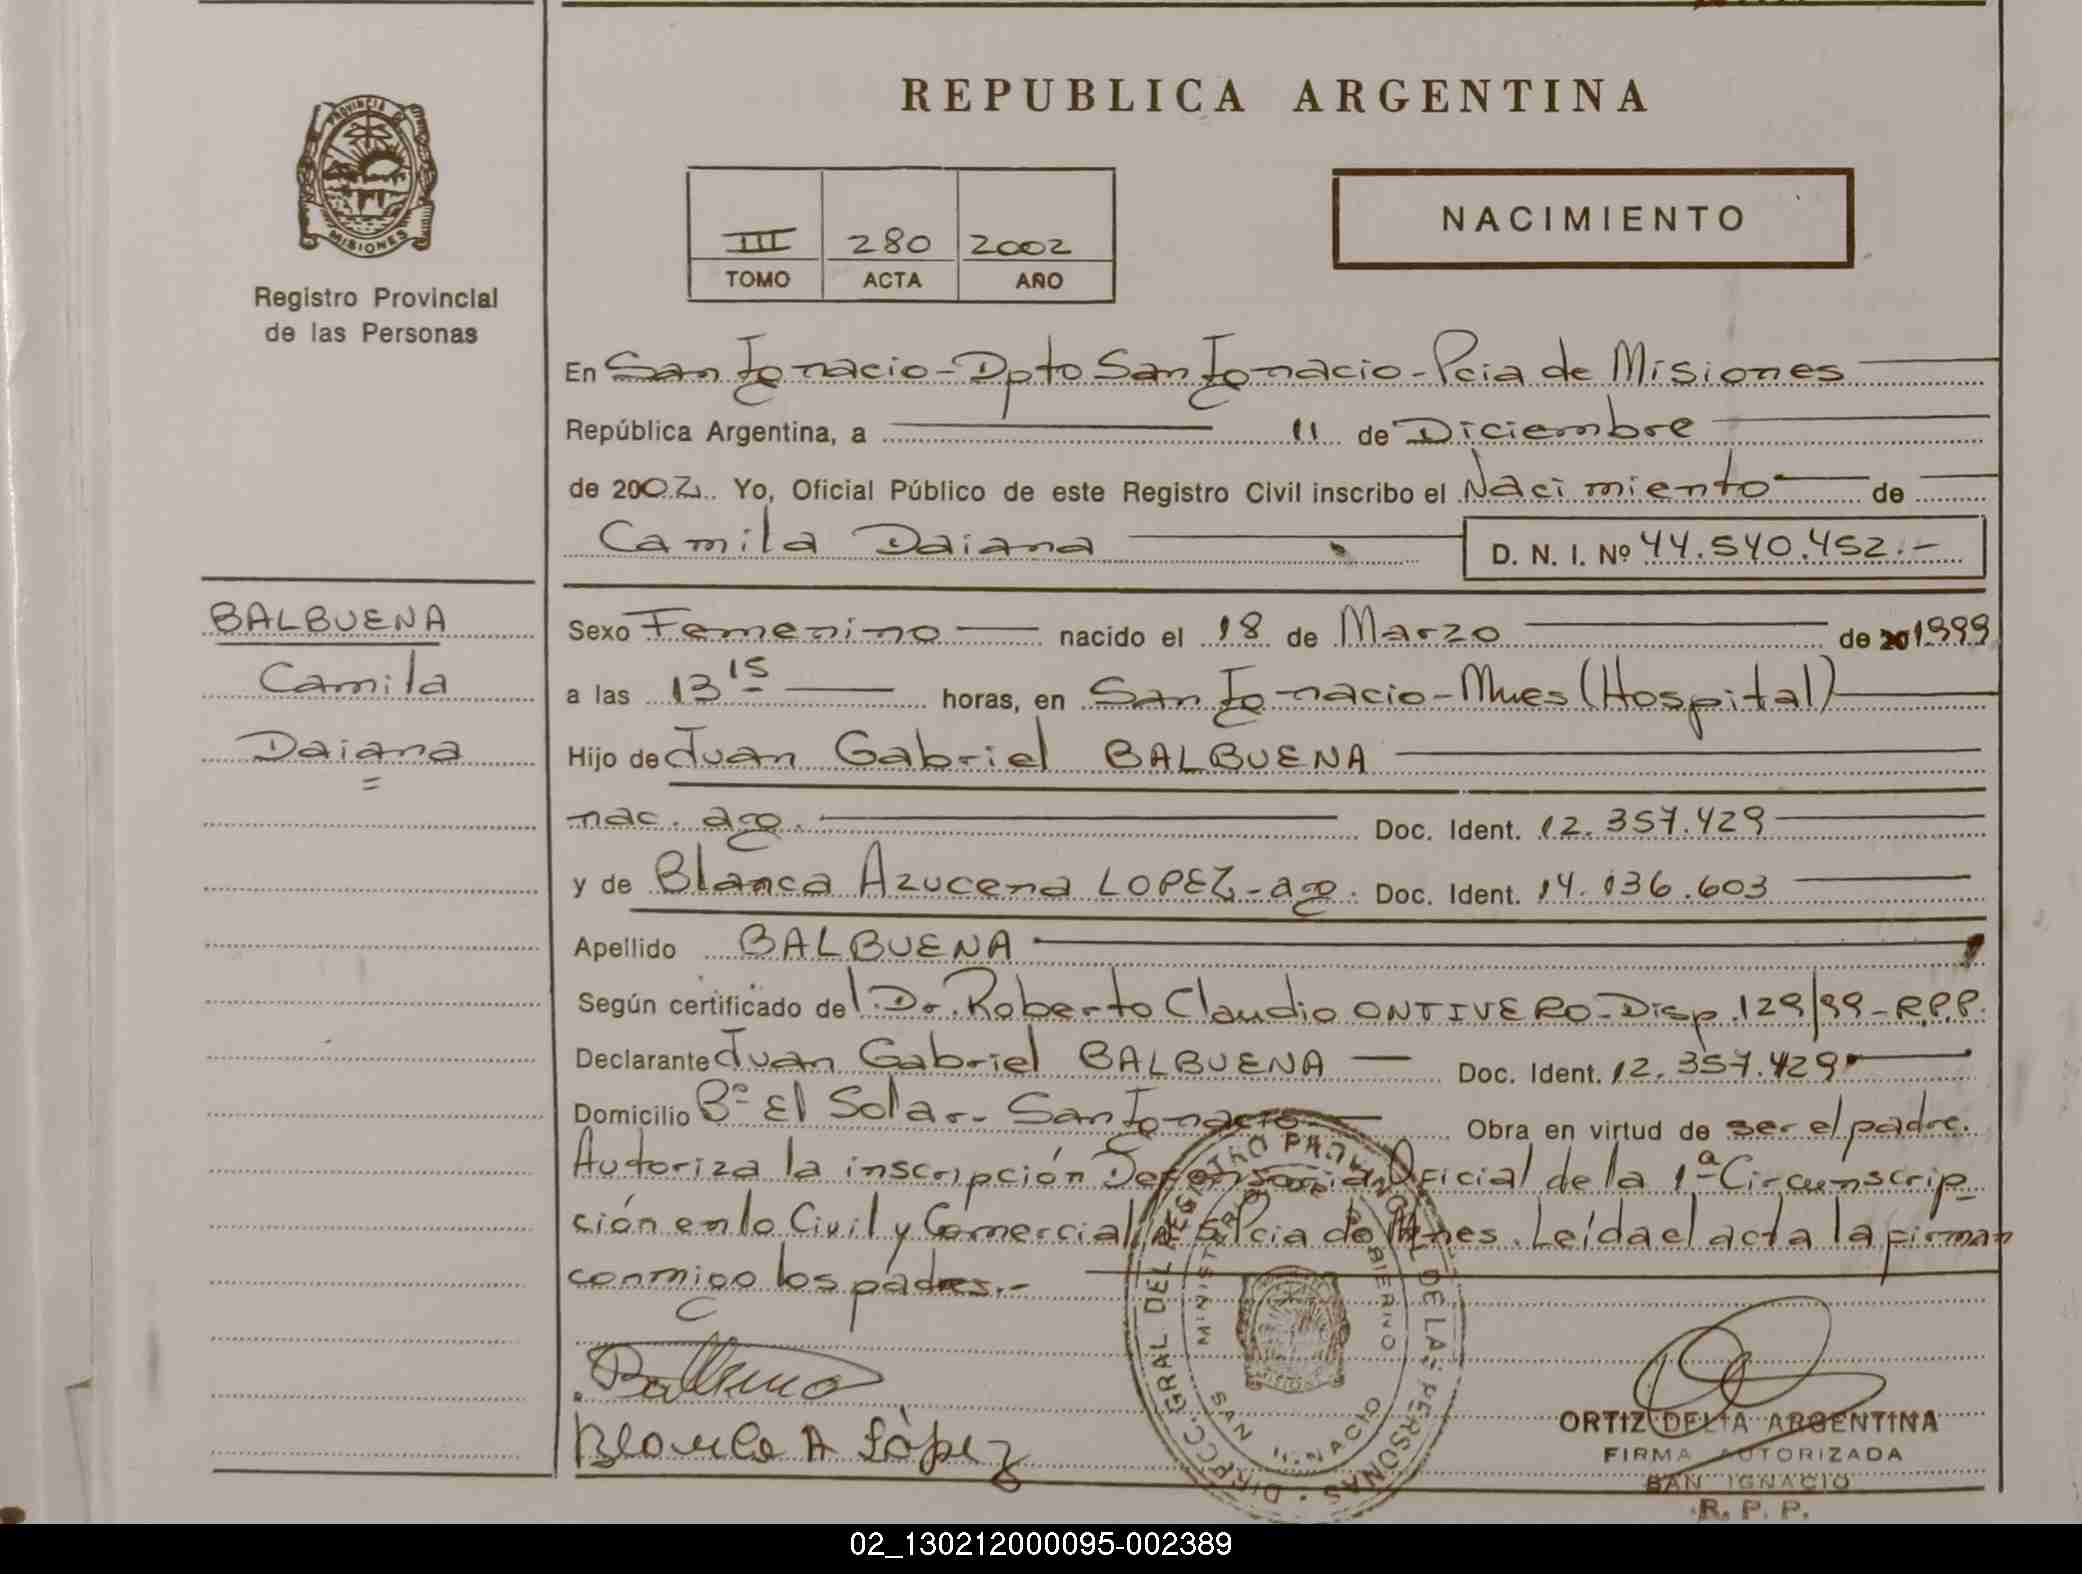 REPUBLICA ARGENTINA
PROVINCIA DE
MISIONES
Registro Provincial
de las Personas
III 280 2002
TOMO ACTA AÑO
NACIMIENTO
En San Ignacio - Dpto San Ignacio - Pcia de Misiones
República Argentina, a 11 de Diciembre
de 2002. Yo, Oficial Público de este Registro Civil inscribo el Nacimiento de
Camila Daiana D. N. I. Nº 44.540.452.-
BALBUENA
Camila
Daiana
Sexo Femenino nacido el 18 de Marzo de 20 1999
a las 13 15 horas, en San Ignacio - Mnes (Hospital)
Hijo de Juan Gabriel BALBUENA
nac. arg. Doc. Ident. 12.357.429
y de Blanca Azucena LOPEZ - arg. Doc. Ident. 14.136.603
Apellido BALBUENA
Según certificado del Dr. Roberto Claudio ONTIVERO - Disp. 129/99 - R.P.P.
Declarante Juan Gabriel BALBUENA Doc. Ident. 12.357.429
Domicilio Bº El Solar - San Ignacio Obra en virtud de ser el padre.
Autoriza la inscripción Defensoria Oficial de la 1ª Circunscrip
ción en lo Civil y Comercial Pcia de Mnes. Leída el acta la firman
conmigo los padres.-
Balbuena
Blanca A López
DIRECC. GRAL DEL REGISTRO PROVINCIAL DE LAS PERSONAS
MINISTERIO DE GOBIERNO
SAN IGNACIO
ORTIZ DELIA ARGENTINA
FIRMA AUTORIZADA
SAN IGNACIO
R. P. P.
02_130212000095-002389